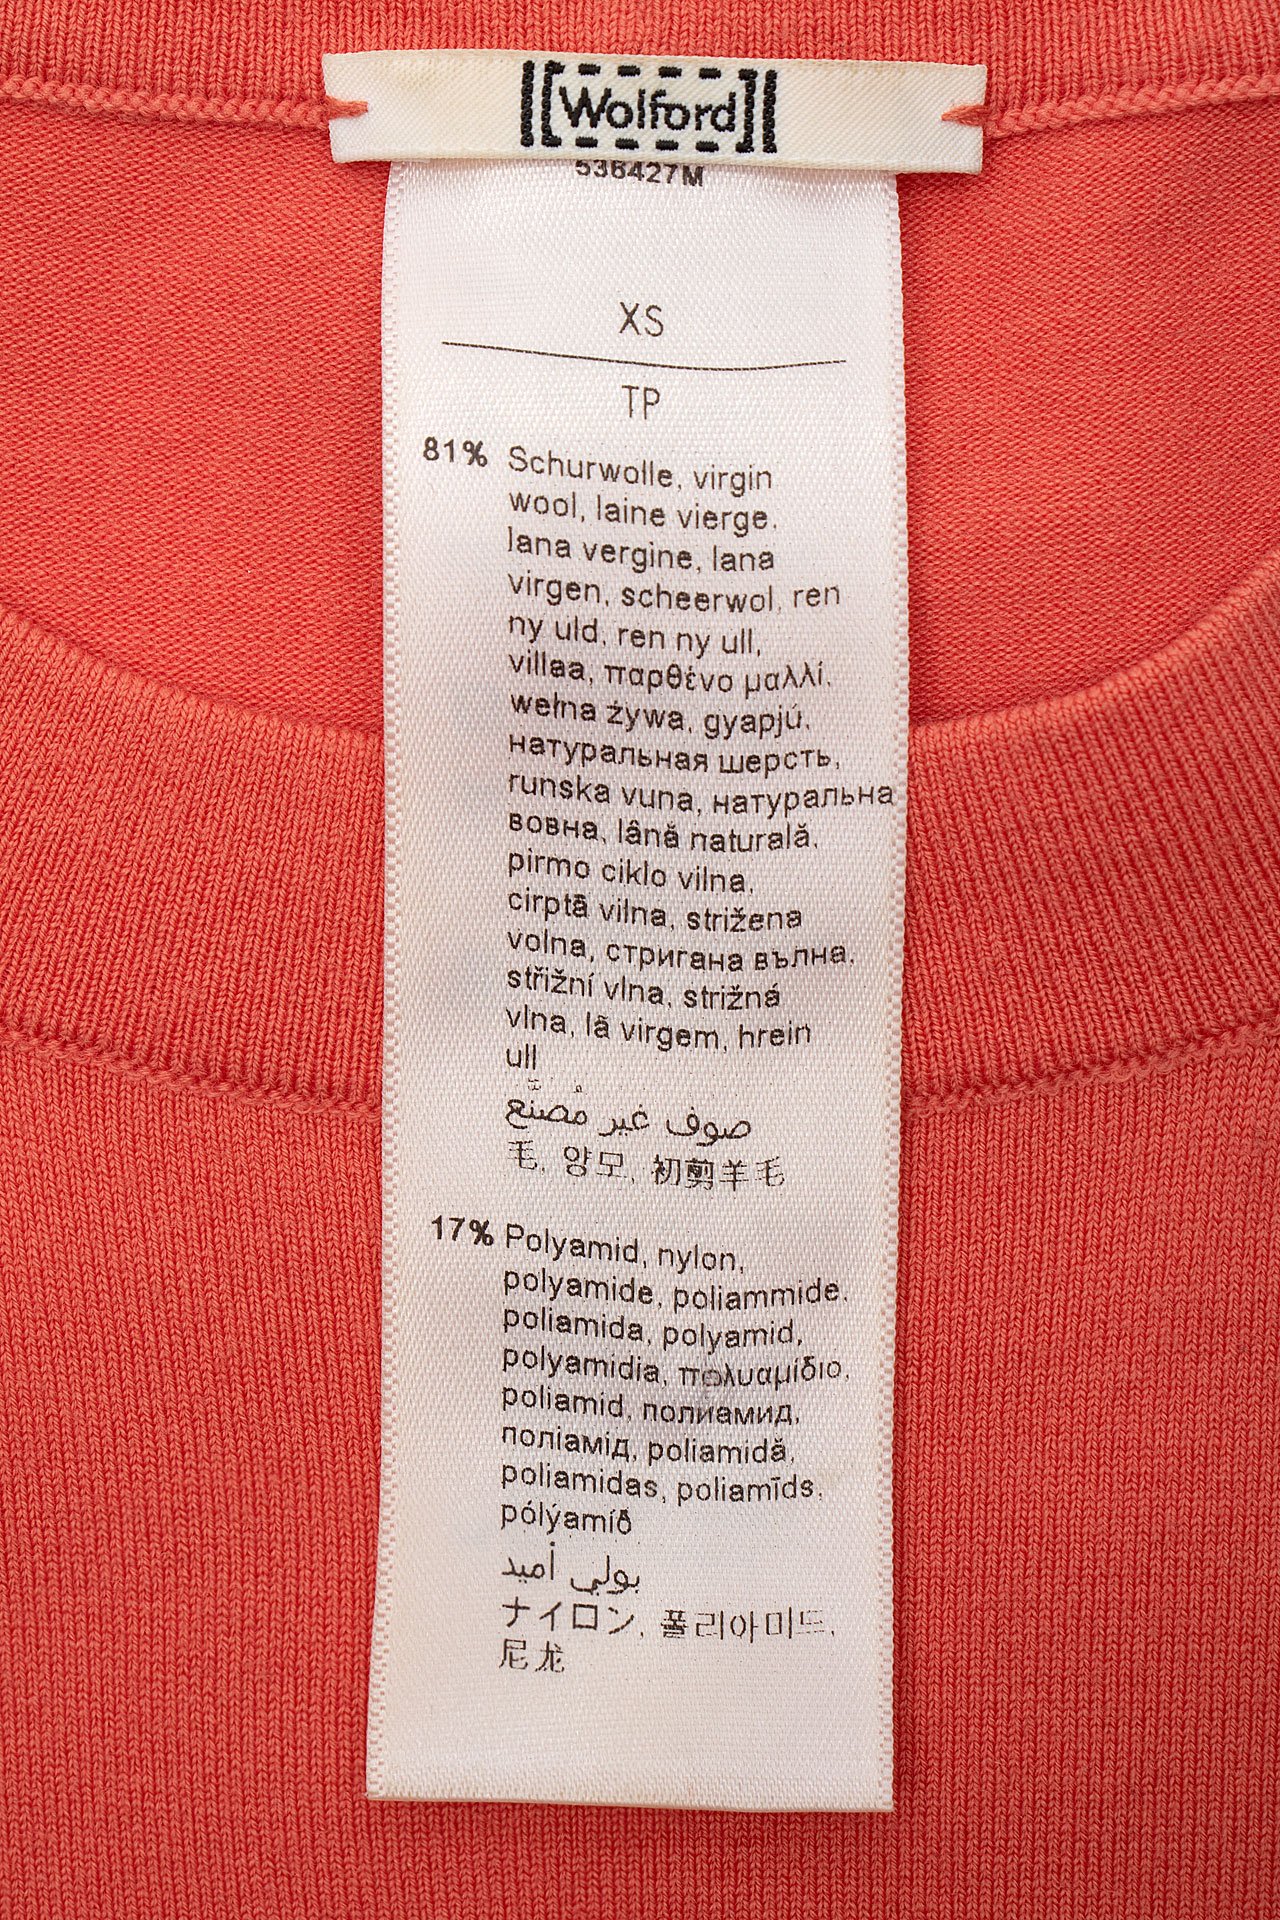 Wolford
536427M
XS
TP
81% Schurwolle, virgin
wool, laine vierge,
lana vergine, lana
virgen, scheerwol, ren
ny uld, ren ny ull,
villaa, παρθένο μαλλί,
wełna żywa, gyapjú,
натуральная шерсть,
runska vuna, натуральна
вовна, lână naturală,
pirmo ciklo vilna,
cirptā vilna, strižena
volna, стригана вълна,
střižní vlna, strižná
vlna, lã virgem, hrein
ull
صوف غير مُصنّع
毛, 양모, 初剪羊毛
17% Polyamid, nylon,
polyamide, poliammide,
poliamida, polyamid,
polyamidia, πολυαμίδιο,
poliamid, полиамид,
поліамід, poliamidă,
poliamidas, poliamīds,
pólýamíð
بولي أميد
ナイロン, 폴리아미드,
尼龙